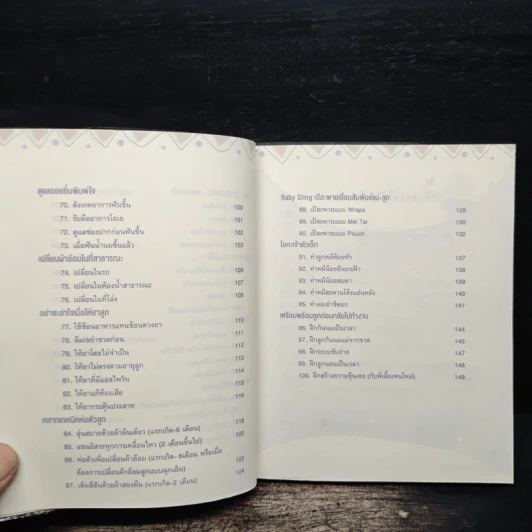 ดูแลรอยยิ้มพิมพ์ใจ
70. สังเกตอาการฟันขึ้น 100
71. รับมืออาการโยเย 101
72. ดูแลช่องปากก่อนฟันขึ้น 102
73. เมื่อฟันน้ำนมขึ้นแล้ว 103
เปลี่ยนผ้าอ้อมในที่สาธารณะ
74. เปลี่ยนในรถ 106
75. เปลี่ยนในห้องน้ำสาธารณะ 107
76. เปลี่ยนในที่โล่ง 108
อย่าชะล่าใจเมื่อให้ยาลูก
77. ใช้ช้อนอาหารแทนช้อนตวงยา 110
78. ลืมเขย่าขวดก่อน 111
79. ให้ยาโดยไม่จำเป็น 112
80. ให้ยาไม่ตรงตามอายุลูก 113
81. ให้ยาที่มีแอสไพริน 114
82. ให้ยาแก้ท้องเสีย 115
83. ให้ยากระตุ้นประสาท 116
หลากเทคนิคห่อตัวลูก
84. อุ่นสบายด้วยผ้าผืนเดียว (แรกเกิด-6 เดือน) 118
85. แขนอิสระทุกการเคลื่อนไหว (2 เดือนขึ้นไป) 120
86. ห่อตัวเพื่อเปลี่ยนผ้าอ้อม (แรกเกิด- 6เดือน หรือเมื่อ
ต้องการเปลี่ยนผ้าอ้อมลูกแบบฉุกเฉิน) 122
87. เติมสีสันด้วยผ้าสองผืน (แรกเกิด-2 เดือน) 124
Baby Sling เป้สะพายเชื่อมสัมพันธ์แม่-ลูก
88. เป้สะพายแบบ Wraps 128
89. เป้สะพายแบบ Mei Tai 130
90. เป้สะพายแบบ Pouch 132
โยคะจ้ำตัวเด็ก
91. ท่าลูกหมีห้อยหัว 137
92. ท่าหมีน้อยยืนบนฟ้า 138
93. ท่าหมีน้อยสบตา 139
94. ท่าหมีสะพานโค้งแอ่นหลัง 140
95. ท่างอเข่าชิดอก 141
เตรียมพร้อมลูกก่อนกลับไปทำงาน
96. ฝึกกินนมเป็นเวลา 144
97. ฝึกลูกกินนมแม่จากขวด 145
98. ฝึกระบบขับถ่าย 147
99. ฝึกลูกนอนเป็นเวลา 147
100. ฝึกสร้างความคุ้นเคย (กับพี่เลี้ยงคนใหม่) 149